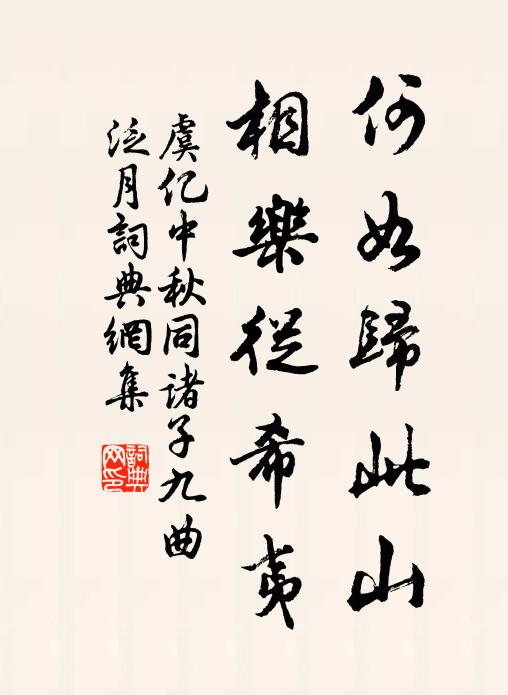 何如歸此山
相樂從希夷
虞仡中秋同諸子九曲
泛月詞典網集
詞典网印